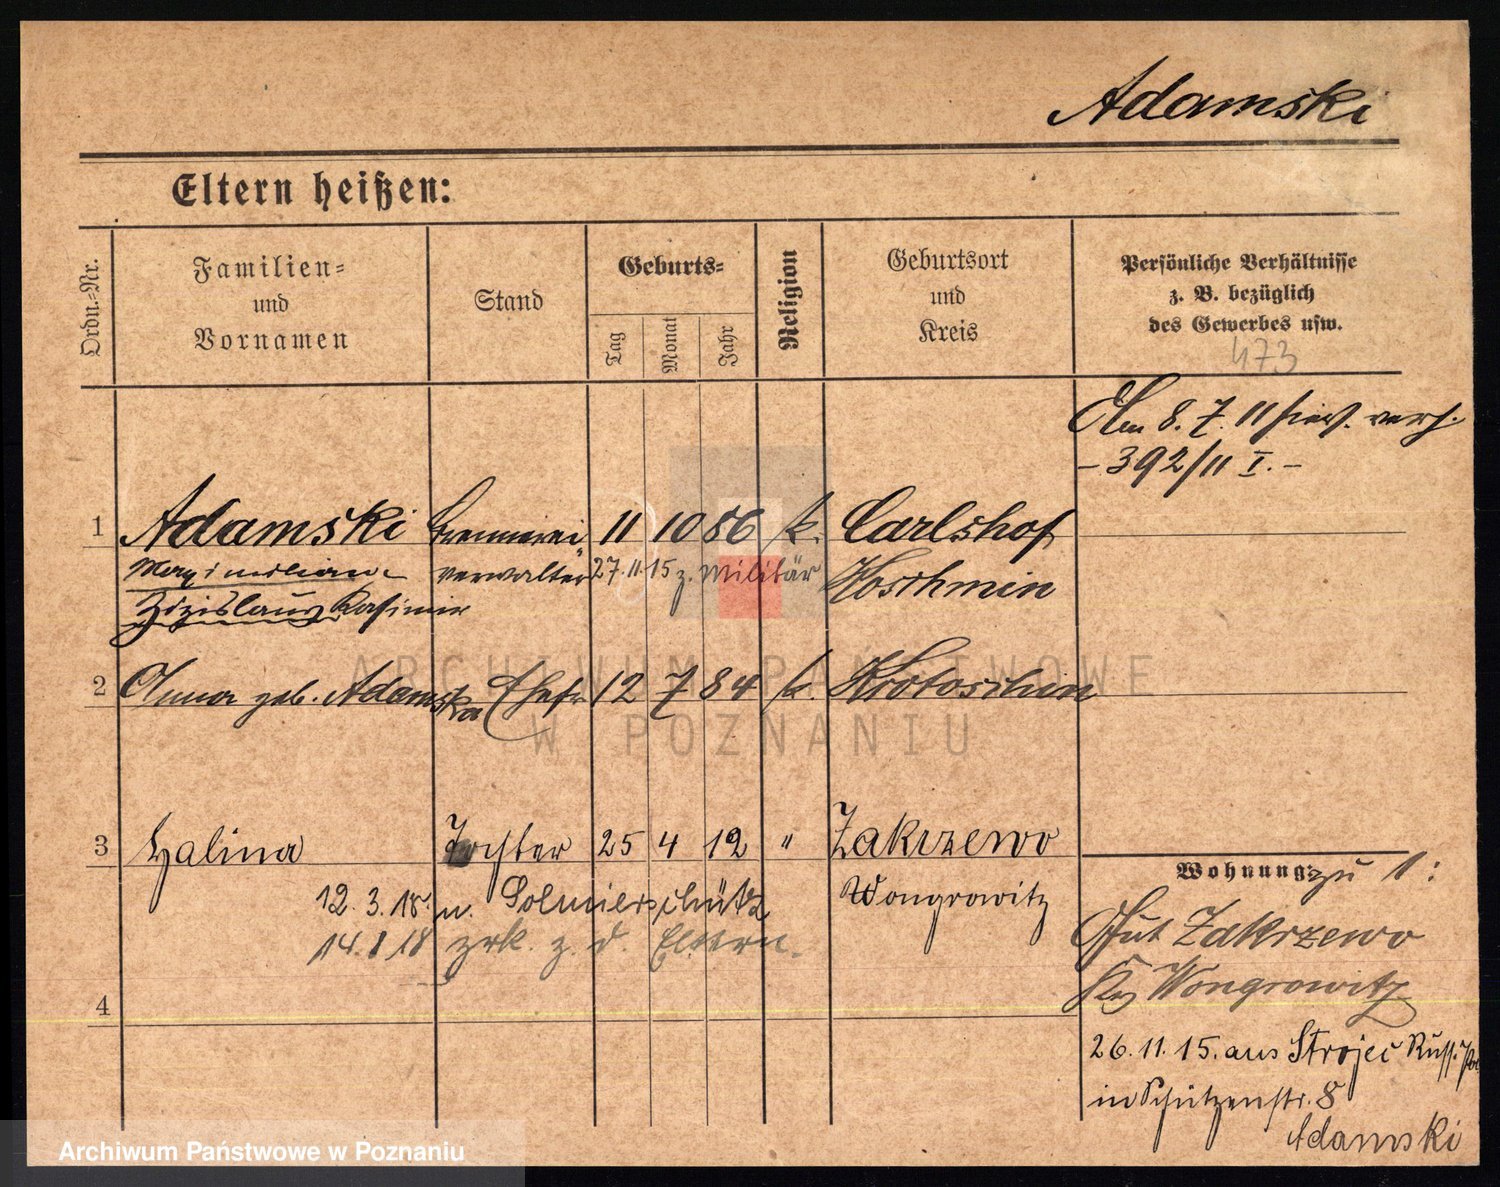 Adamski
Eltern heißen:
Ordn.-Nr.
Familien-
und
Vornamen
Stand
Geburts-
Tag
Monat
Jahr
Religion
Geburtsort
und
Kreis
Persönliche Verhältnisse
z. B. bezüglich
des Gewerbes usw.
473
Am 8. 7. 11 hier. verh.
- 392/11 I. -
1 Adamski Brennerei 11 10 86 k. Carlshof
Maximilian verwalter 27.11.15 z. Militär Koschmin
Zdzislaus Kasimir
2 Anna geb. Adamska Ehefr 12 7 84 k. Krotoschin
3 Halina Tochter 25 4 12 " Zakrzewo
Wongrowitz
12. 3. 18. n.
14. 8 18 zrk. z. d. Eltern.
4
Wohnung: zu 1:
Gut Zakrzewo
Krs Wongrowitz
26. 11. 15. aus Strojec Russ.
in Schützenstr. 8
Adamski
ARCHIWUM PAŃSTWOWE
W POZNANIU
Archiwum Państwowe w Poznaniu